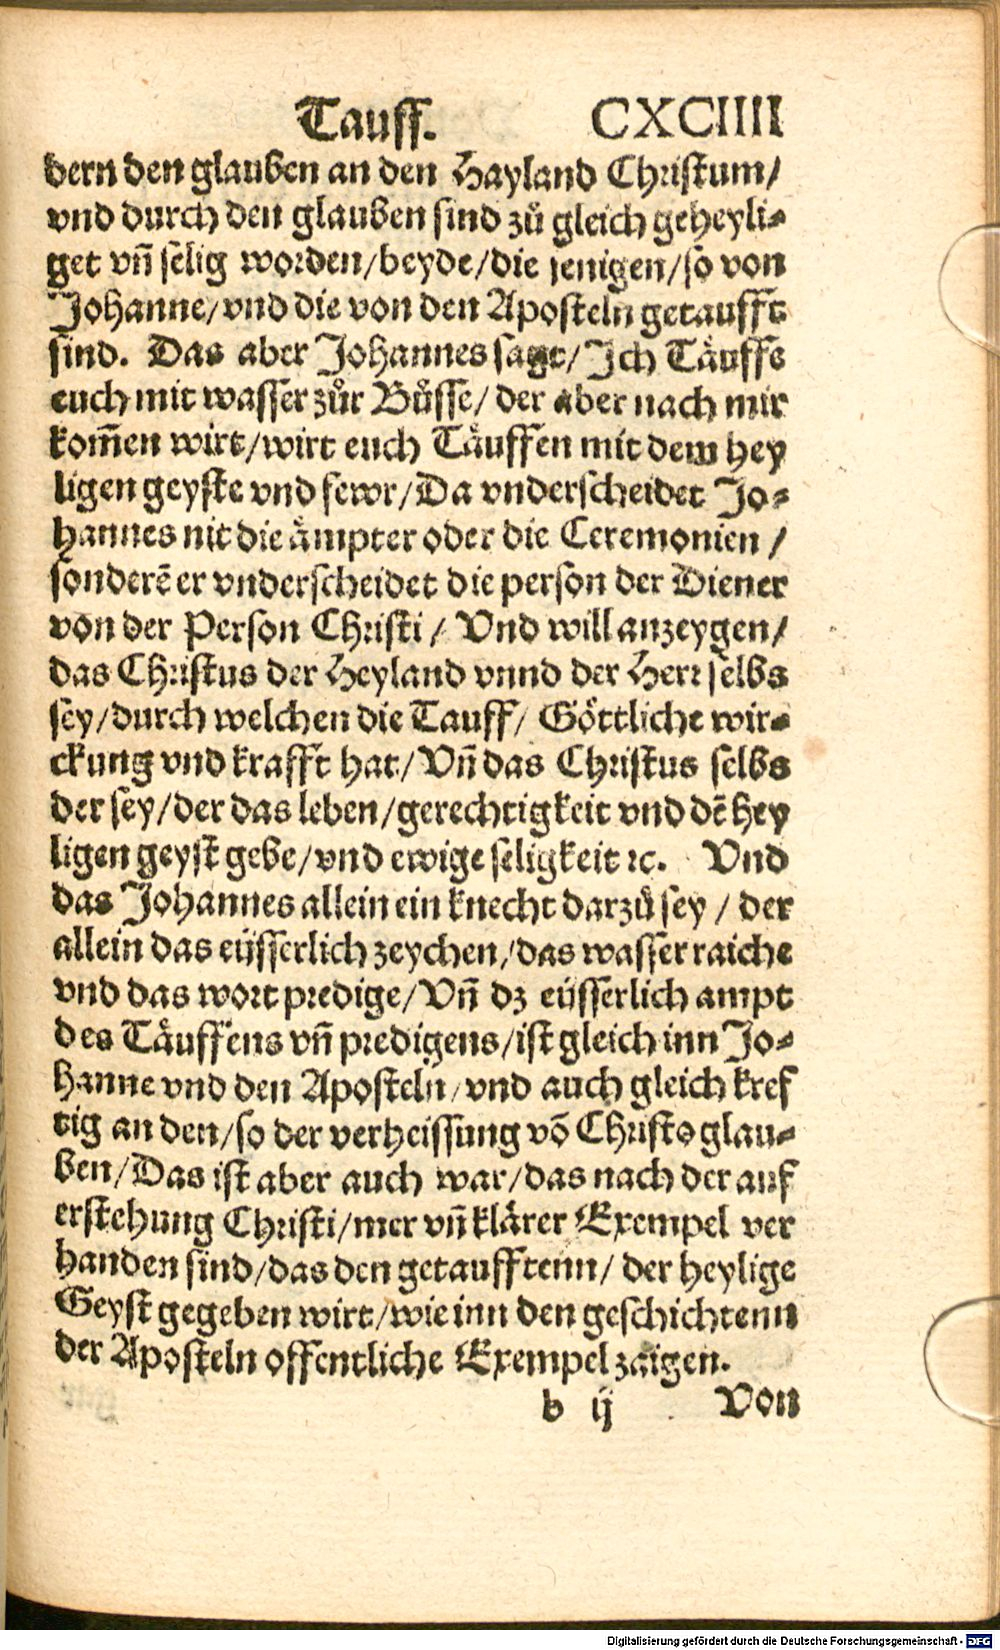 Tauff. CXCIIII
dern den glauben an den Hayland Christum/
vnd durch den glauben sind zů gleich geheyli-
get vñ selig worden/beyde/die jenigen/so von
Johanne/vnd die von den Aposteln getaufft
sind. Das aber Johannes sagt/Ich Tåuffe
euch mit wasser zůr Bůsse/ der aber nach mir
kom̃en wirt/wirt euch Tåuffen mit dem hey
ligen geyste vnd fewr/Da vnderscheidet Jo-
hannes nit die åmpter oder die Ceremonien /
sonderẽ er vnderscheidet die person der Diener
von der Person Christi / Vnd will anzeygen/
das Christus der Heyland vnnd der Herr selbs
sey/durch welchen die Tauff/ Göttliche wir-
ckung vnd krafft hat/Vñ das Christus selbs
der sey/der das leben/gerechtigkeit vnd dẽ hey
ligen geyst gebe/vnd ewige seligkeit ꝛc. Vnd
das Johannes allein ein knecht darzů sey / der
allein das eüsserlich zeychen/das wasser raiche
vnd das wort predige/Vñ dz eüsserlich ampt
des Tåuffens vñ predigens/ist gleich inn Jo-
hanne vnd den Aposteln/vnd auch gleich kref
tig an den/so der verheissung võ Christo glau-
ben/Das ist aber auch war/das nach der auf
erstehung Christi/mer vñ klårer Exempel ver
handen sind/das den getaufftenn/ der heylige
Geyst gegeben wirt/wie inn den geschichtenn
der Aposteln offentliche Exempel zaigen.
b ij Von
Digitalisierung gefördert durch die Deutsche Forschungsgemeinschaft - DFG